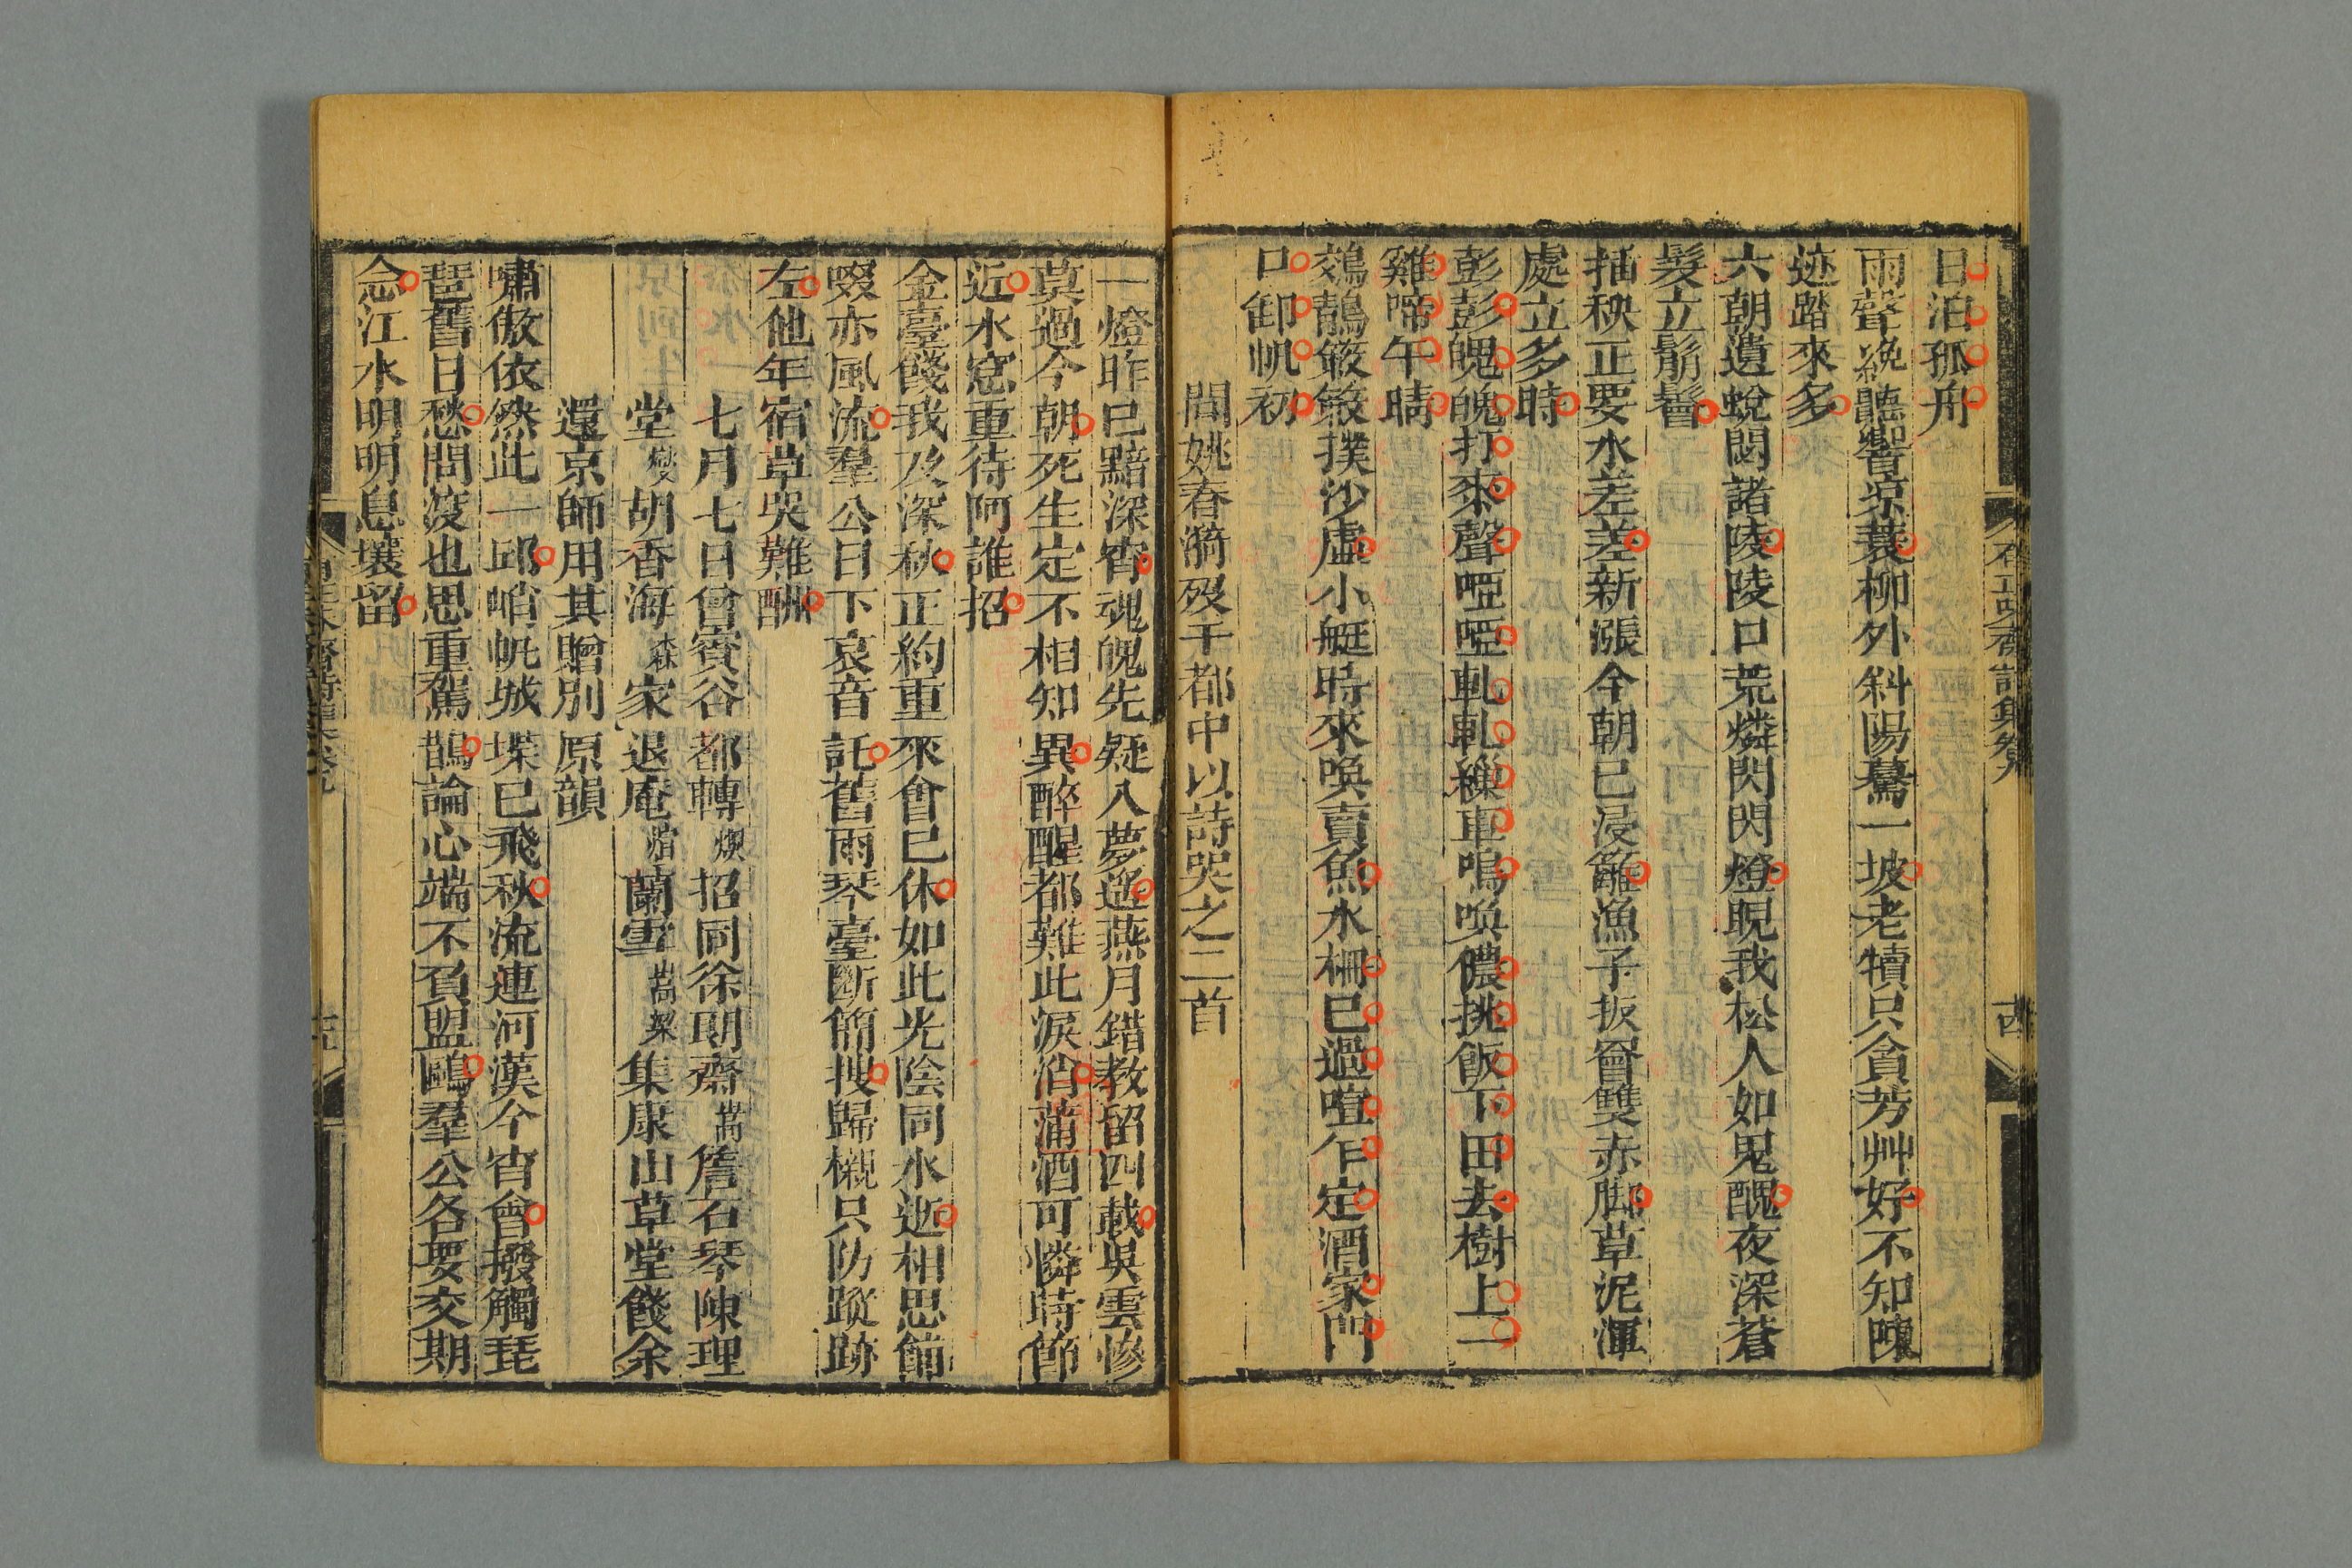 日泊孤舟
雨聲纔聽響涼蓑柳外斜陽驀一坡老犢只貪芳艸好不知
迹踏來多
六朝遺蛻閟諸陵陵口荒燐閃閃燈睨我松人如鬼醜夜深蒼
髮立鬅鬙
插秧正要水差差新漲今朝已浸籬漁子扳罾雙赤脚草泥渾
處立多時
彭彭魄魄打來聲啞啞軋軋繅車鳴喚儂挑飯下田去樹上一
雞啼午晴
鵁鶄簌簌撲沙虛小艇時來喚賣魚水柵已過喧乍定酒家門
口卸帆初
聞姚春漪歿于都中以詩哭之二首
一燈昨已黯深宵魂魄先疑入夢遙燕月錯教留四載吳雲慘
莫過今朝死生定不相知異醉醒都難此淚消蒲酒可憐時節
近水窓重待阿誰招
金臺餞我及深秋正約重來會已休如此光陰同水逝相思餔
啜亦風流羣公日下哀音託舊雨琴臺斷簡搜歸櫬只防蹤跡
左他年宿草哭難酬
七月七日曾賓谷都轉燠招同徐朗齋嵩詹石琴陳理
堂燮胡香海森家退庵煊蘭雪嵩梁集康山草堂餞余
還京師用其贈別原韻
嘯傲依然此一邱峭帆城堞已飛秋流連河漢今宵會撥觸琵
琶舊日愁問渡也思重駕鵲論心端不負盟鷗羣公各要交期
念江水明明息壤留